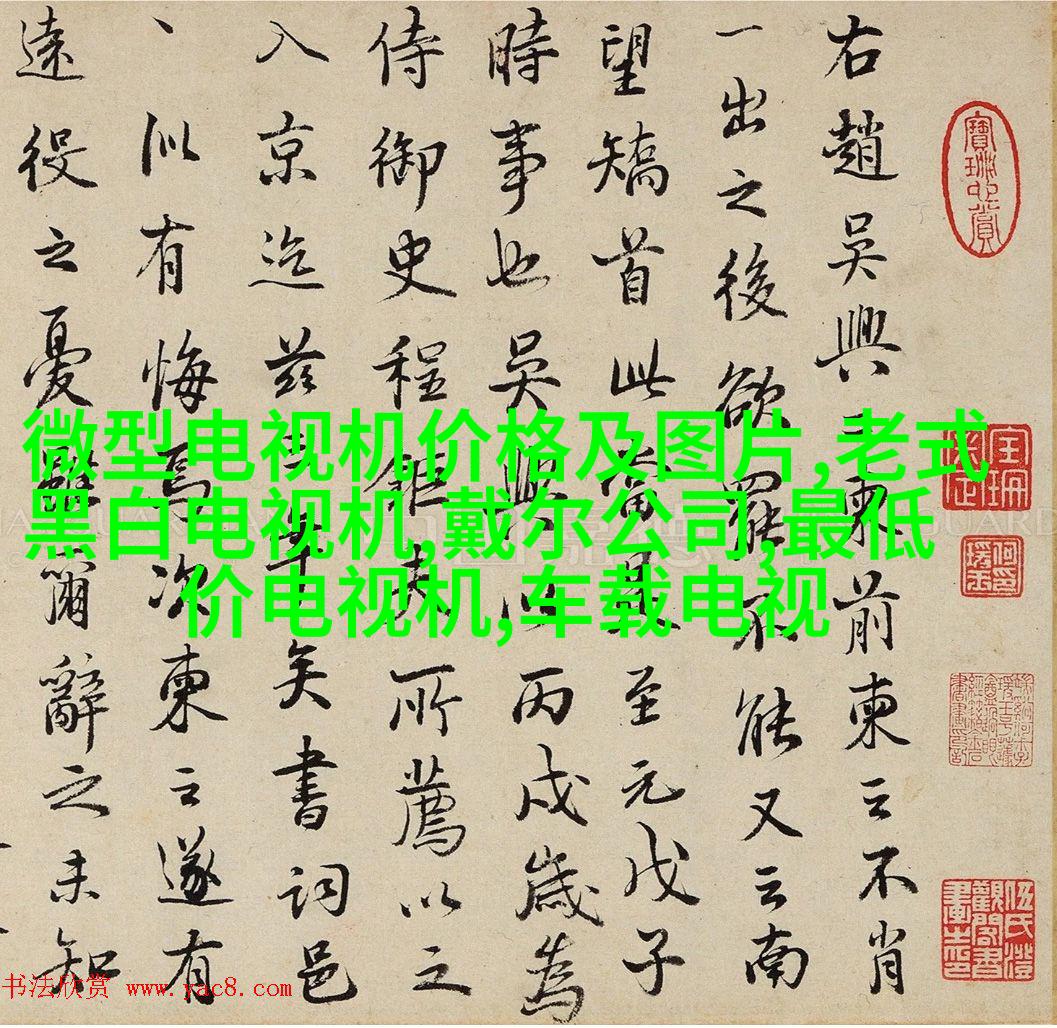 右趙吳興二柬前柬云不肖
一出之後欲罷不能又云南
望矯首此是至元戊子
時事也吳興以丙戌歲為
侍御史程鉅夫所薦以之
入京迄茲年矣書詞邑
、似有悔焉次柬云遂有
遠役之憂爾辭之未知
微型电视机价格及图片,老式
黑白电视机,戴尔公司,最低
价电视机,车载电视
书法欣赏 www.yac8.com